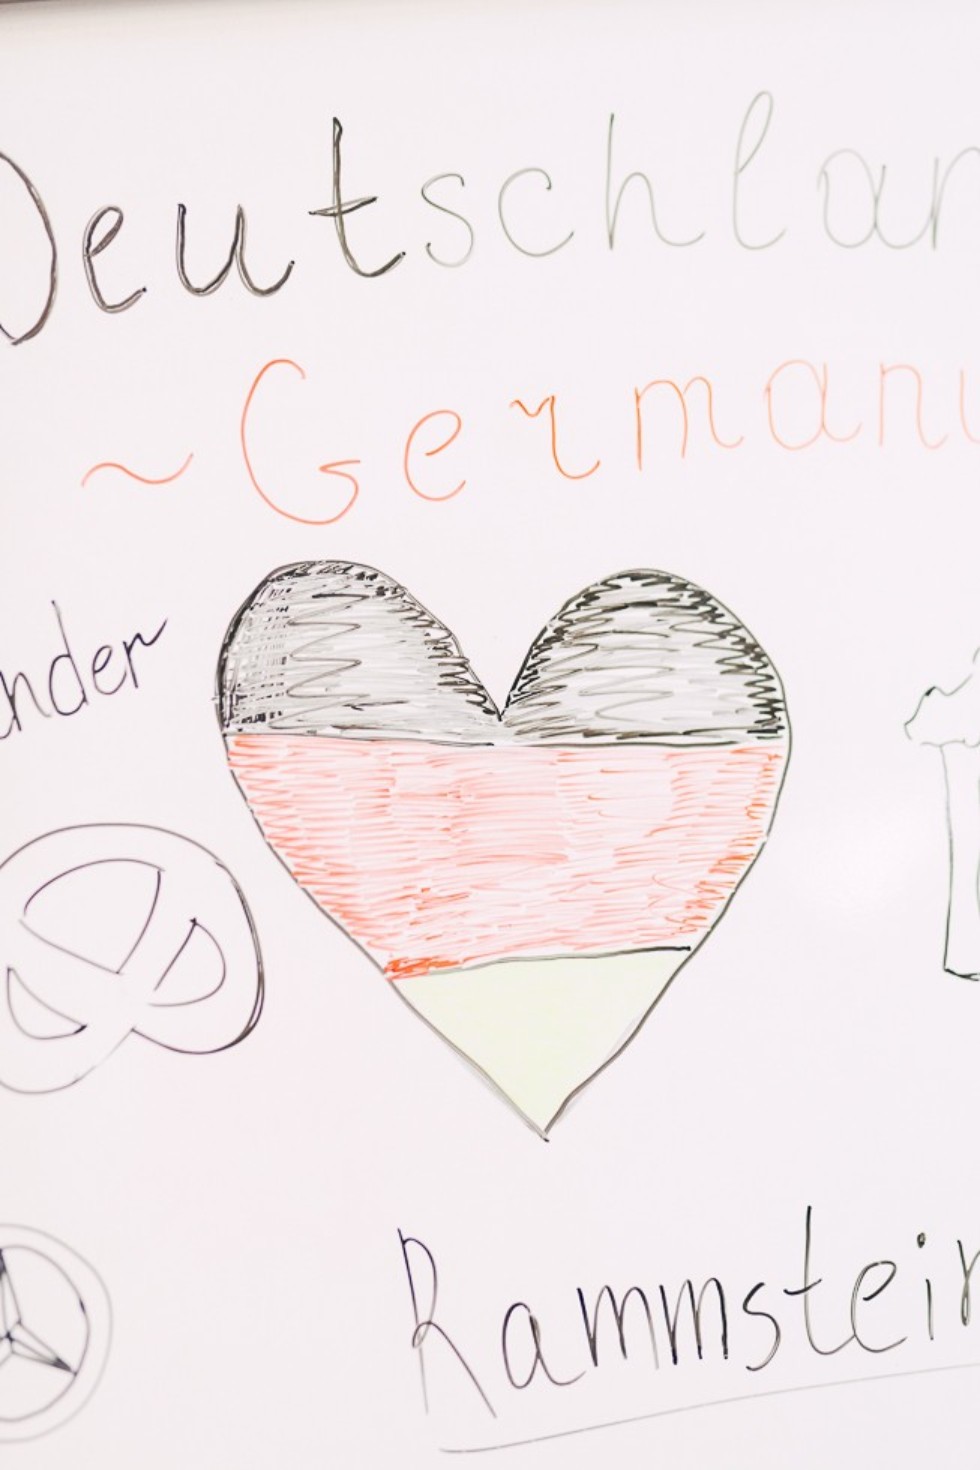 Deutschlan
~Germany
nder
Rammstein